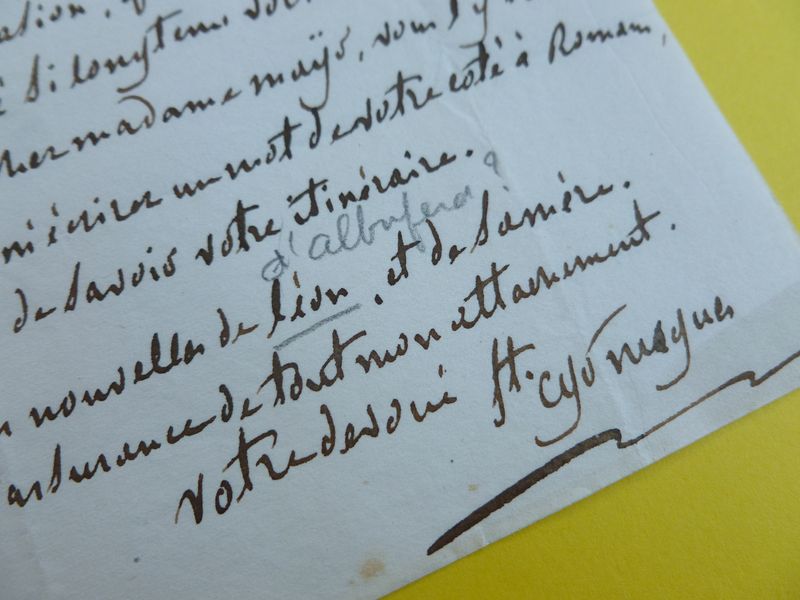 si longtems
cher madame mayö, vous
m'écrirez un mot de votre coté à Romans,
de savoir votre itinéraire.
d'albufera ?
nouvelles de léon, et de sa mère.
assurance de tout mon attachement.
votre devoué St. cyr nugues